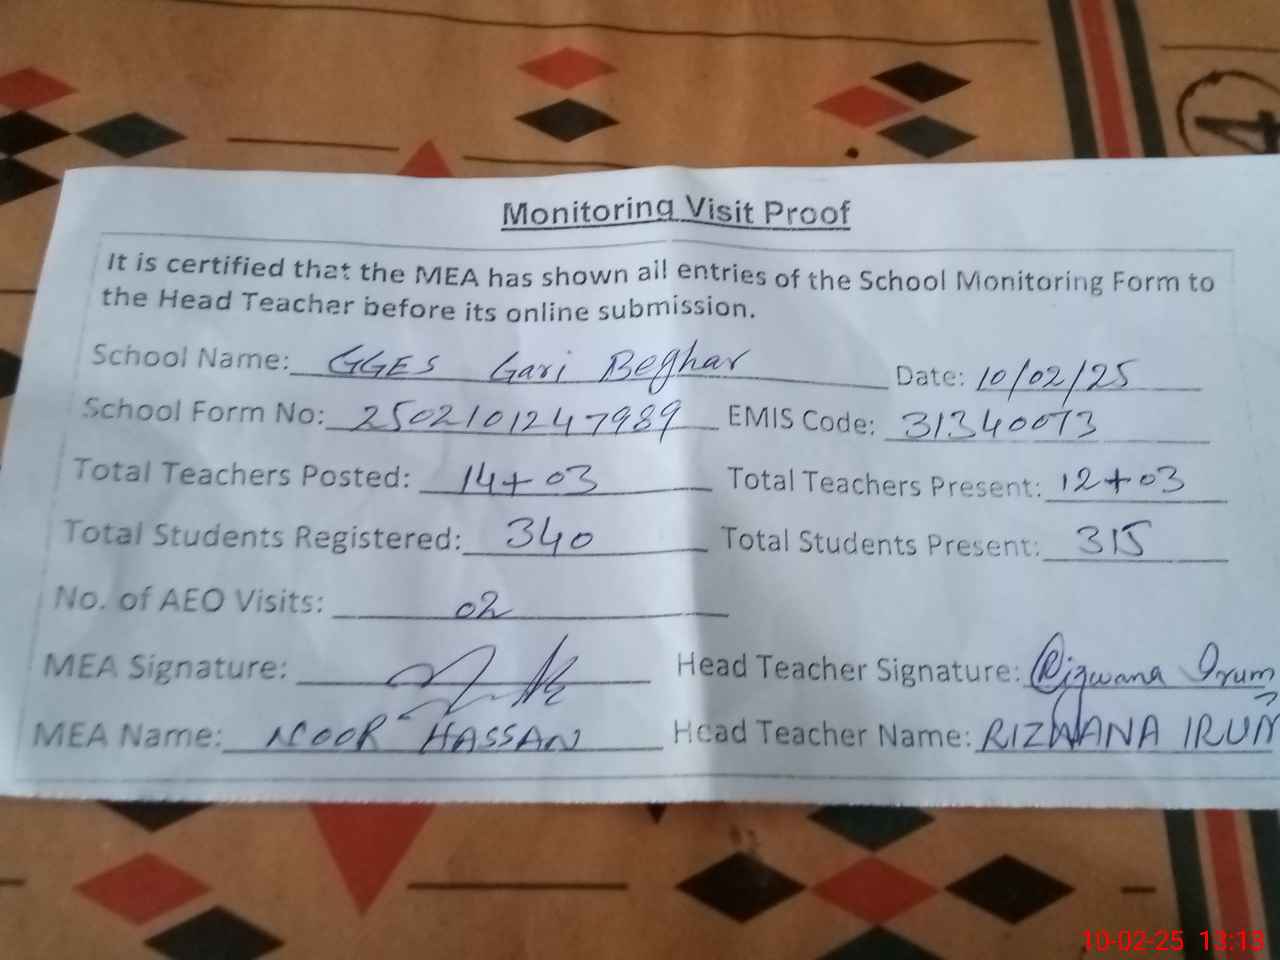 4
Monitoring Visit Proof
It is certified that the MEA has shown all entries of the School Monitoring Form to
the Head Teacher before its online submission.
School Name: GGES Gari Beghar Date: 10/02/25
School Form No: 2502101247989 EMIS Code: 31340073
Total Teachers Posted: 14+03 Total Teachers Present: 12+03
Total Students Registered: 340 Total Students Present: 315
No. of AEO Visits: 02
MEA Signature: Head Teacher Signature: Rizwana Irum
MEA Name: NOOR HASSAN Head Teacher Name: RIZWANA IRUM
10-02-25 13:13